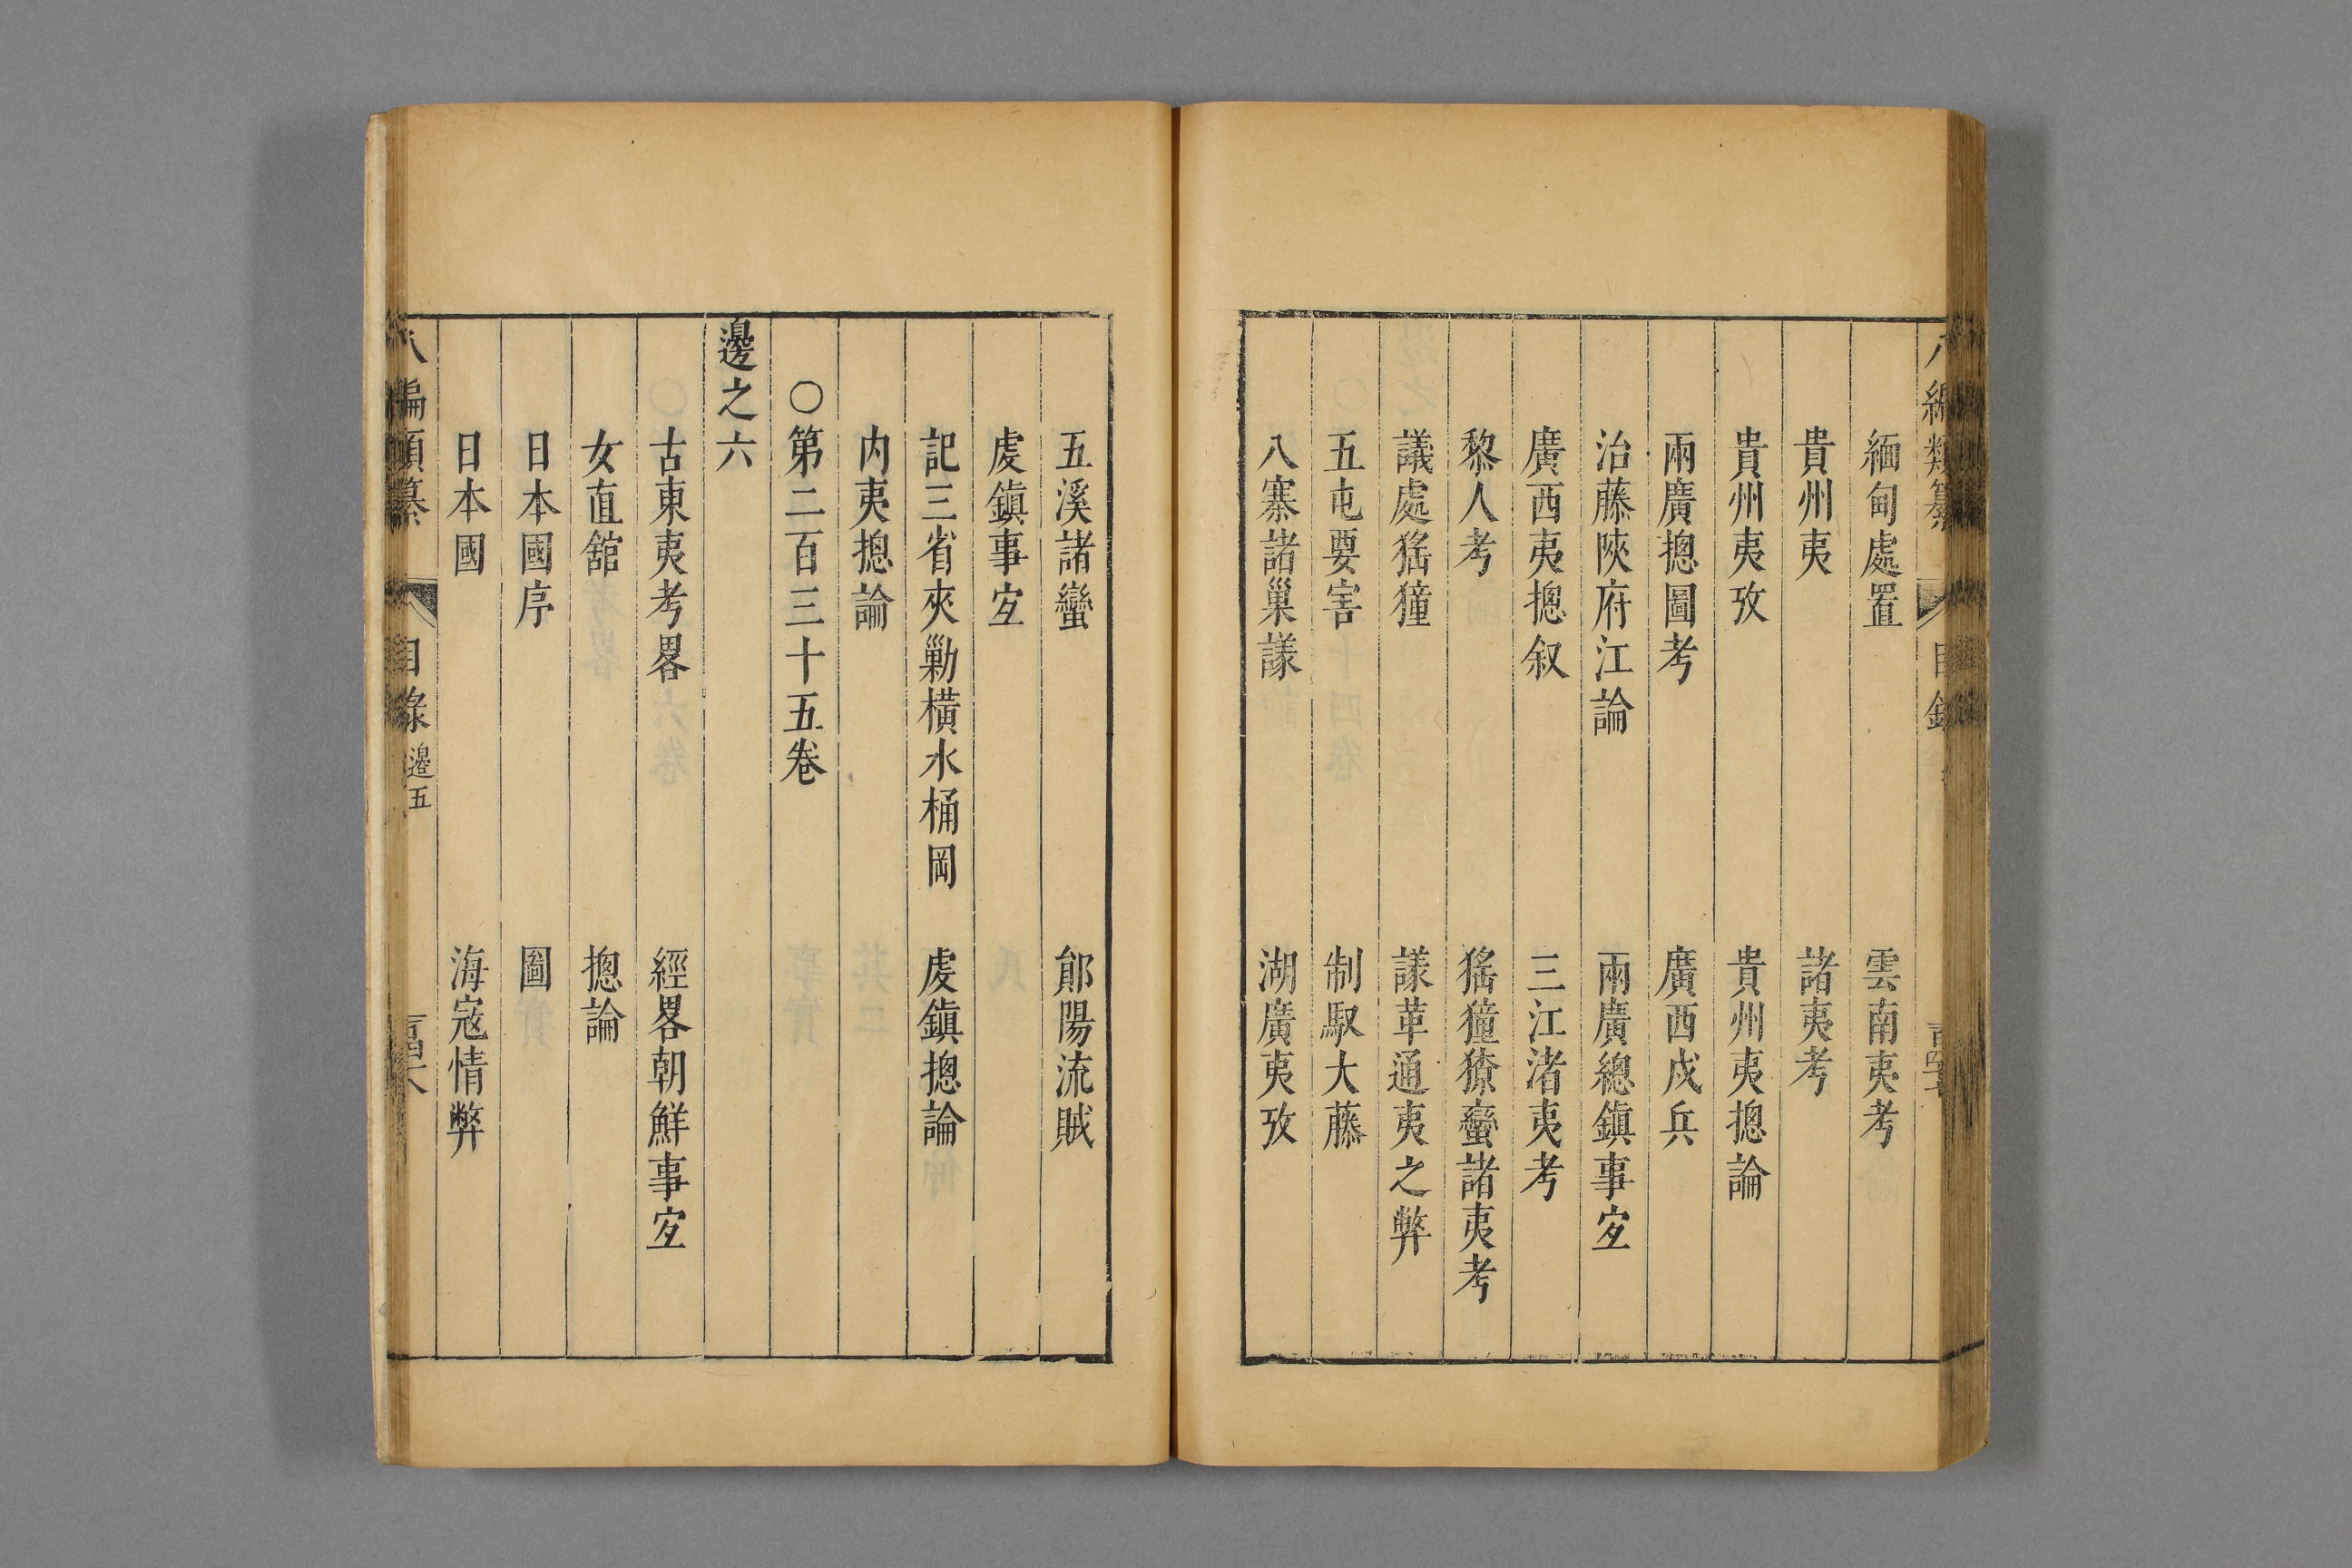 緬甸處置　雲南夷考
貴州夷　諸夷考
貴州夷攷　貴州夷摠論
兩廣摠圖考　廣西戍兵
治藤陜府江論　兩廣總鎮事宐
廣西夷摠叙　三江渚夷考
黎人考　猺獞獠蠻諸夷考
議處猺獞　議革通夷之弊
五屯要害　制馭大藤
八寨諸巢議　湖廣夷攷
五溪諸蠻　鄖陽流賊
虔鎮事宐
記三省夾勦橫水桶岡　虔鎮摠論
内夷摠論
○第二百三十五卷
邊之六
古東夷考畧　經畧朝鮮事宐
女直舘　摠論
日本國序　圖
日本國　海寇情弊
八編類纂　目錄　邊五